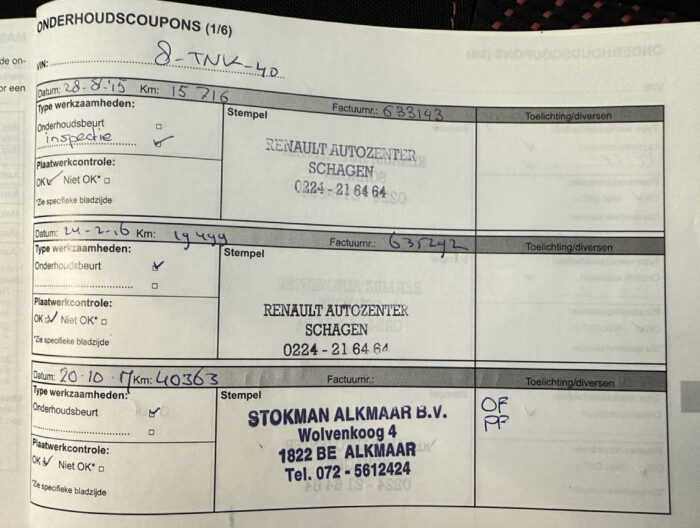 ONDERHOUDSCOUPONS (1/6)
de on-
VIN: 8-TNK-40
or een
Datum: 28-8-'15 Km: 15716 Factuurnr.: 633143 Toelichting/diversen
Type werkzaamheden:
Stempel
Onderhoudsbeurt
inspectie
RENAULT AUTOZENTER
SCHAGEN
0224 - 21 64 64
Plaatwerkcontrole:
OK Niet OK*
*Zie specifieke bladzijde
Datum: 24-2-16 Km: 19499 Factuurnr.: 635292 Toelichting/diversen
Type werkzaamheden:
Stempel
Onderhoudsbeurt
Plaatwerkcontrole:
OK Niet OK*
*Zie specifieke bladzijde
RENAULT AUTOZENTER
SCHAGEN
0224 - 21 64 64
Datum: 20-10-17 Km: 40363 Factuurnr.: Toelichting/diversen
Type werkzaamheden:
Stempel
Onderhoudsbeurt
STOKMAN ALKMAAR B.V.
Wolvenkoog 4
1822 BE ALKMAAR
Tel. 072 - 5612424
OF
PF
Plaatwerkcontrole:
OK Niet OK*
*Zie specifieke bladzijde